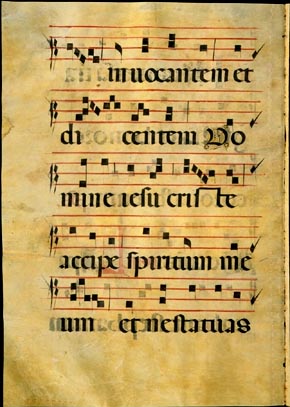 inuocantem et
di centem Do
mine iesu criste
accipe spiritum me
um et ne statuas